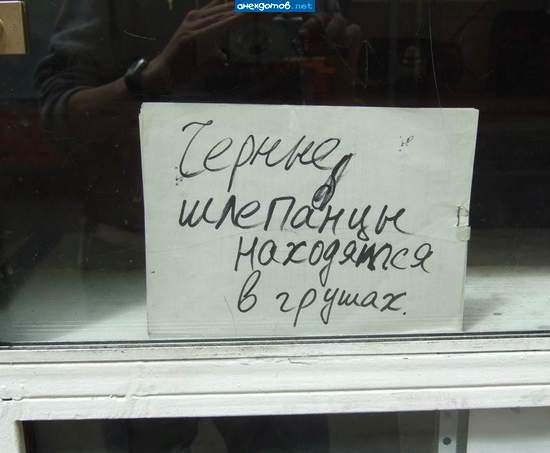 анекдотов.net
Черные
шлепанцы
находятся
в грушах.